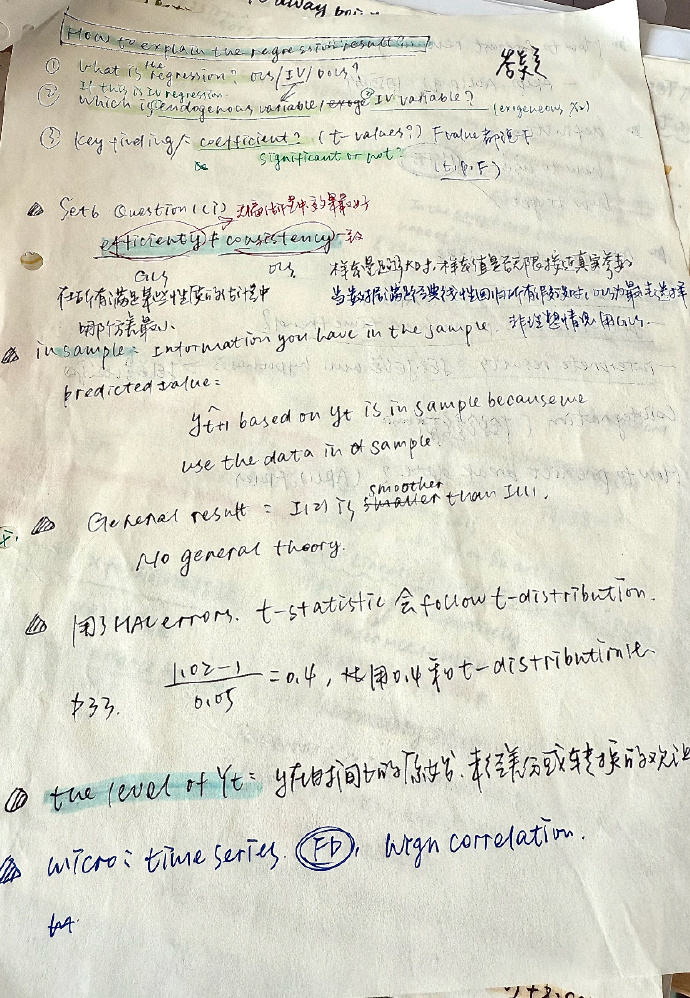 away
How to explain the regression result?
答疑
① What is the regression? OLS/IV/DOLS?
If this is IV regression.
② Which is endogenous variable/ ② IV variable? (exogeneous X2)
③ Key finding/ coefficient? (t-values?) F value 都强于
significant or not?
(t, p, F)
Set 6 Question 1(i)
efficienty ≠ consistency 一致
GLS OLS
在所有满足某些性质的估计中
哪个方差最小
样本量足够大时,样本值是否无限接近真实参数
当数据满足经典线性回归所有假设时,OLS为最优选择
非理想情况用GLS.
in sample: Information you have in the sample.
predicted value:
ŷt+1 based on yt is in sample because we
use the data in sample.
General result: I(2) is smoother smaller than I(1).
No general theory.
用了HAC errors. t-statistic 会 follow t-distribution.
P33. (1.02-1)/0.05 = 0.4, 用0.4和t-distribution比.
the level of Yt: y在时间t的原始、未经差分或转换的
micro: time series. high correlation.